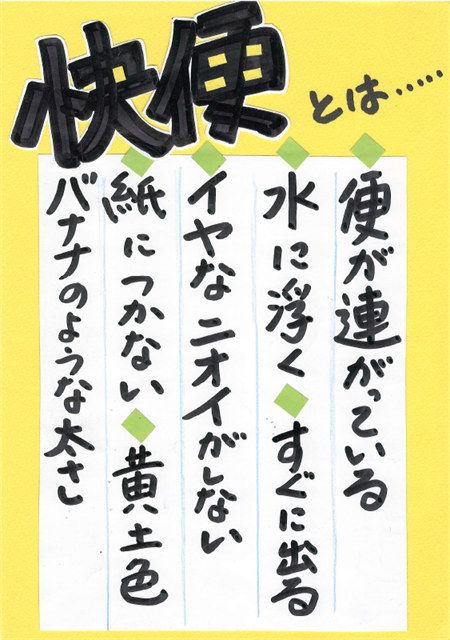 快便とは……
便が連がっている
水に浮く すぐに出る
イヤなニオイがしない
紙につかない 黄土色
バナナのような太さ